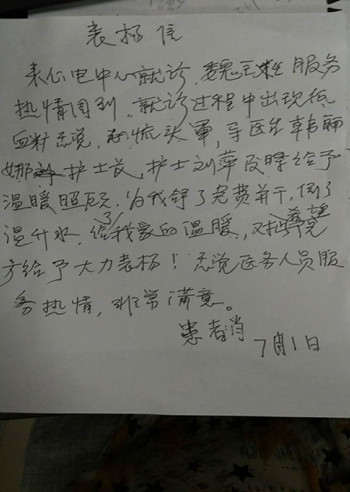 表扬信
来心电中心就诊，魏玉 服务
热情周到，就诊过程中出现低
血糖 觉，心慌头晕，导医生韩丽
娜 护士长，护士刘萍 给予
温暖照顾，为我拿了免费并干，倒了
温开水，给了我家的温暖，对 望
方给予大力表扬！ 觉医务人员服
务热情，非常满意。
患者肖
7月1日